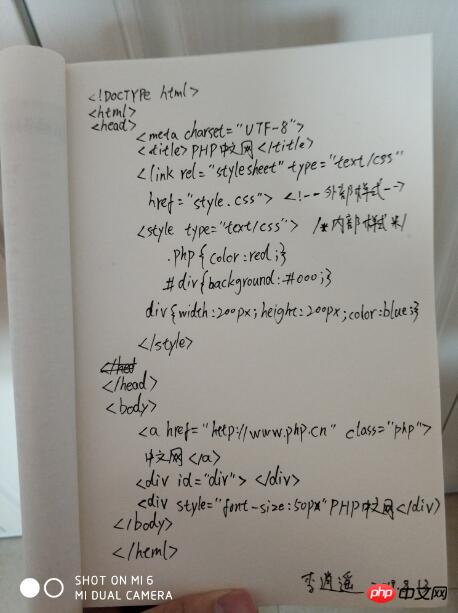 <!DOCTYPE html>
<html>
<head>
<meta charset="UTF-8">
<title>PHP中文网</title>
<link rel="stylesheet" type="text/css"
href="style.css"> <!--外部样式-->
<style type="text/css"> /*内部样式*/
.php{color:red;}
#div{background:#000;}
div{width:200px;height:200px;color:blue;}
</style>
</head>
<body>
<a href="http://www.php.cn" class="php">
中文网</a>
<div id="div"> </div>
<div style="font-size:50px"PHP中文网</div>
</body>
</heml>
李逍遥
SHOT ON MI 6
MI DUAL CAMERA
php 中文网